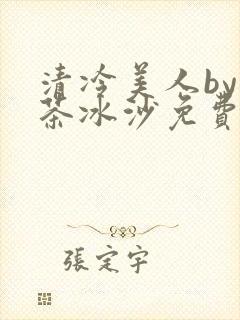 清冷美人by
茶冰沙免費
張定宇